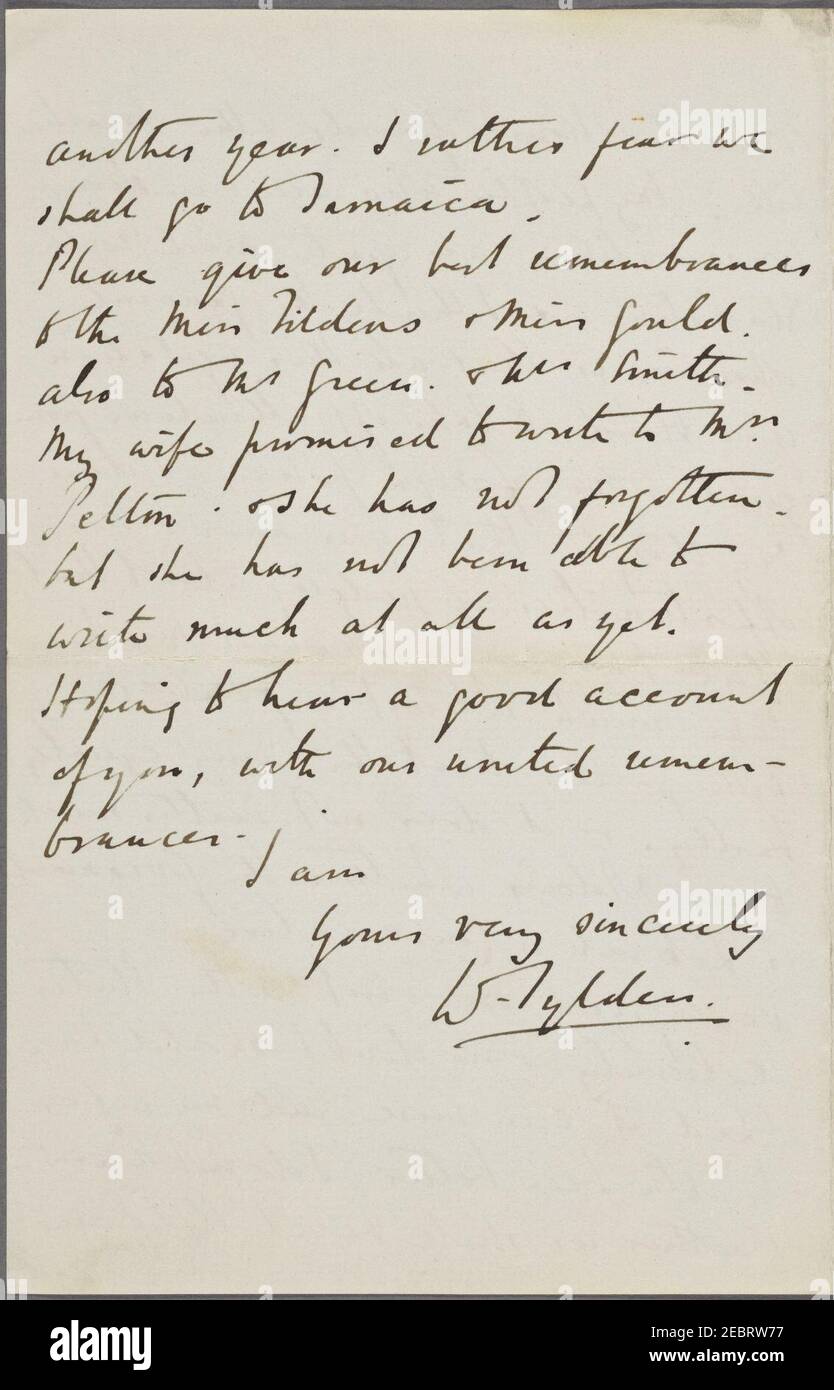 another year. I rather fear we
shall go to Jamaica.
Please give our best remembrances
to the Miss Tildens & Miss Gould.
also to Mr Green. & Mr Smith.
My wife promised to write to Mrs
Pelton. & she has not forgotten.
but she has not been able to
write much at all as yet.
Hoping to hear a good account
of you, with our united remem-
brances.
I am
Yours very sincerely
W. Tylden.
alamy
Image ID: 2EBRW77
www.alamy.com